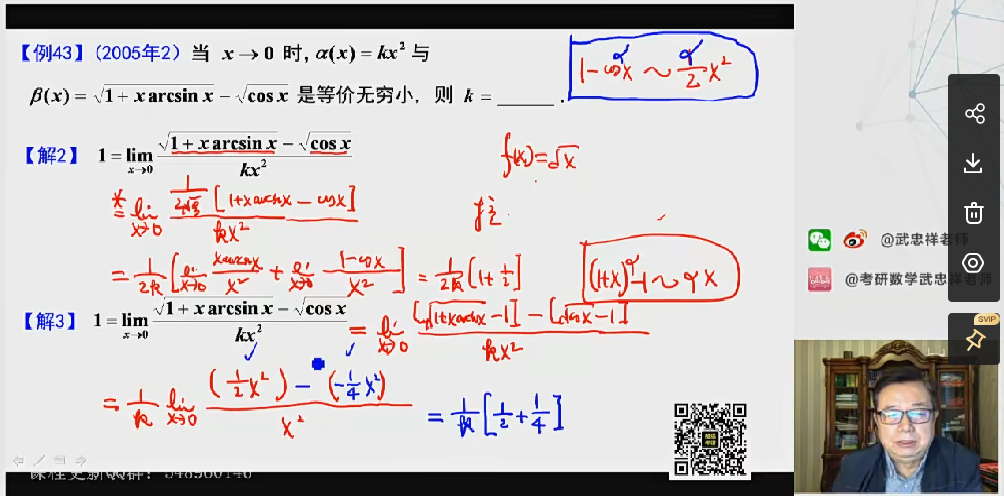 【例43】(2005年2) 当 x → 0 时, α(x) = kx² 与
β(x) = √(1 + x arcsin x) − √(cos x) 是等价无穷小, 则 k = ______ .
1 − cos^α x ~ α/2 x²
【解2】 1 = lim_{x→0} (√(1 + x arcsin x) − √(cos x)) / kx²
f(x) = √x
* = lim_{x→0} 1/(2√ξ) [1+x arcsin x − cos x] / kx²
= 1/2k [lim_{x→0} x arcsin x / x² + lim_{x→0} (1−cos x) / x²] = 1/2k [1 + 1/2]
(1+x)^α − 1 ~ αx
【解3】 1 = lim_{x→0} (√(1 + x arcsin x) − √(cos x)) / kx² = lim_{x→0} ([√(1+x arcsin x) − 1] − [√(cos x) − 1]) / kx²
= 1/k lim_{x→0} ((1/2 x²) − (−1/4 x²)) / x² = 1/k [1/2 + 1/4]
课程更新QQ群: 348960146
@武忠祥老师
@考研数学武忠祥老师
SVIP